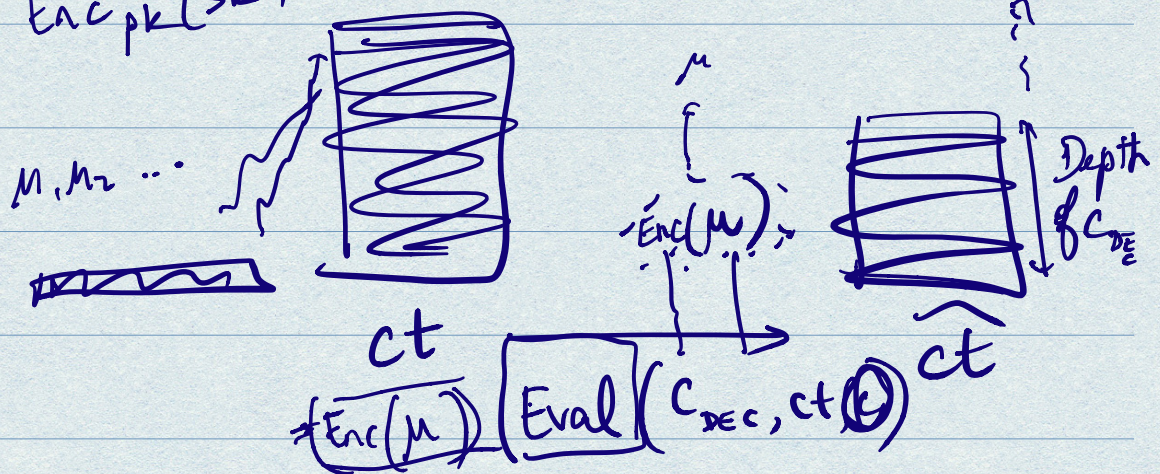 Enc_pk(
μ
μ₁, μ₂ ...
Enc(μ)
Depth
of C_DEC
ct
ct
Enc(μ) Eval(C_DEC, ct